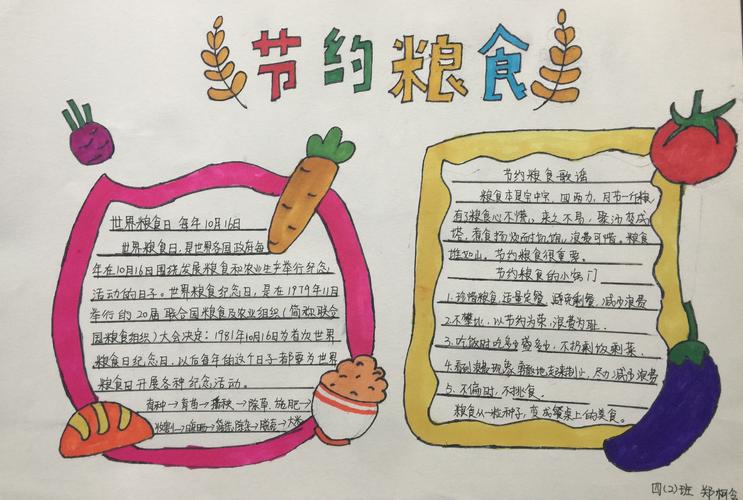 节约粮食
世界粮食日 每年10月16日
世界粮食日,是世界各国政府每
年在10月16日围绕发展粮食和农业生产举行纪念
活动的日子。世界粮食纪念日,是在1979年11月
举行的20届联合国粮食及农业组织(简称联合
国粮食组织)大会决定:1981年10月16日为首次世界
粮食日纪念日,以后每年的这个日子都要为世界
粮食日开展各种纪念活动。
育种→育苗→插秧→除草、施肥→
→大米
节约粮食歌谣
粮食本是宝中宝,四两力,月节一斤粮
有了粮食心不慌,来之不易,聚沙变成
塔。浪费可惜。粮食
堆如山。节约粮食很重要。
节约粮食的小窍门
1.珍惜粮食,适量定餐,避免剩餐,减少浪费
2.不攀比,以节约为荣,浪费为耻。
3.吃饭时吃多少盛多少,不扔剩饭剩菜。
4.看到浪费现象勇敢地去制止,尽力减少浪费
5.不偏食,不挑食。
粮食从一粒种子,变成餐桌上的美食。
四(2)班 郑柯